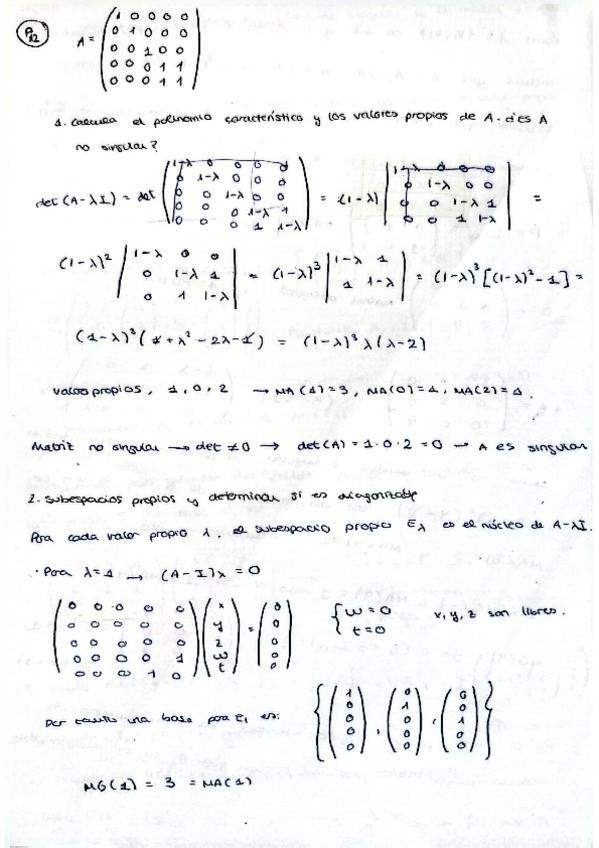 P12
A = ( 1 0 0 0 0
0 1 0 0 0
0 0 1 0 0
0 0 0 1 1
0 0 0 1 1 )
1. Calcula el polinomio característico y los valores propios de A. ¿es A
no singular?
det(A-λI) = det ( 1-λ 0 0 0 0
0 1-λ 0 0 0
0 0 1-λ 0 0
0 0 0 1-λ 1
0 0 0 1 1-λ ) = (1-λ) | 1-λ 0 0 0
0 1-λ 0 0
0 0 1-λ 1
0 0 1 1-λ | =
(1-λ)² | 1-λ 0 0
0 1-λ 1
0 1 1-λ | = (1-λ)³ | 1-λ 1
1 1-λ | = (1-λ)³ [(1-λ)² - 1] =
(1-λ)³ (1 + λ² - 2λ - 1) = (1-λ)³ λ (λ-2)
valores propios, 1, 0, 2 → MA(1)=3, MA(0)=1, MA(2)=1.
Matriz no singular → det ≠ 0 → det(A) = 1·0·2 = 0 → A es singular
2. Subespacios propios y determinar si es diagonizable
Para cada valor propio λ. el subespacio propio Eλ es el núcleo de A-λI.
· Para λ=1 → (A-I)x = 0
( 0 0 0 0 0
0 0 0 0 0
0 0 0 0 0
0 0 0 0 1
0 0 0 1 0 ) ( x
y
z
w
t ) = ( 0
0
0
0
0 ) { w = 0
t = 0 x, y, z son libres.
Por tanto una base para E1 es: { ( 1
0
0
0
0 ) , ( 0
1
0
0
0 ) , ( 0
0
1
0
0 ) }
MG(1) = 3 = MA(1)